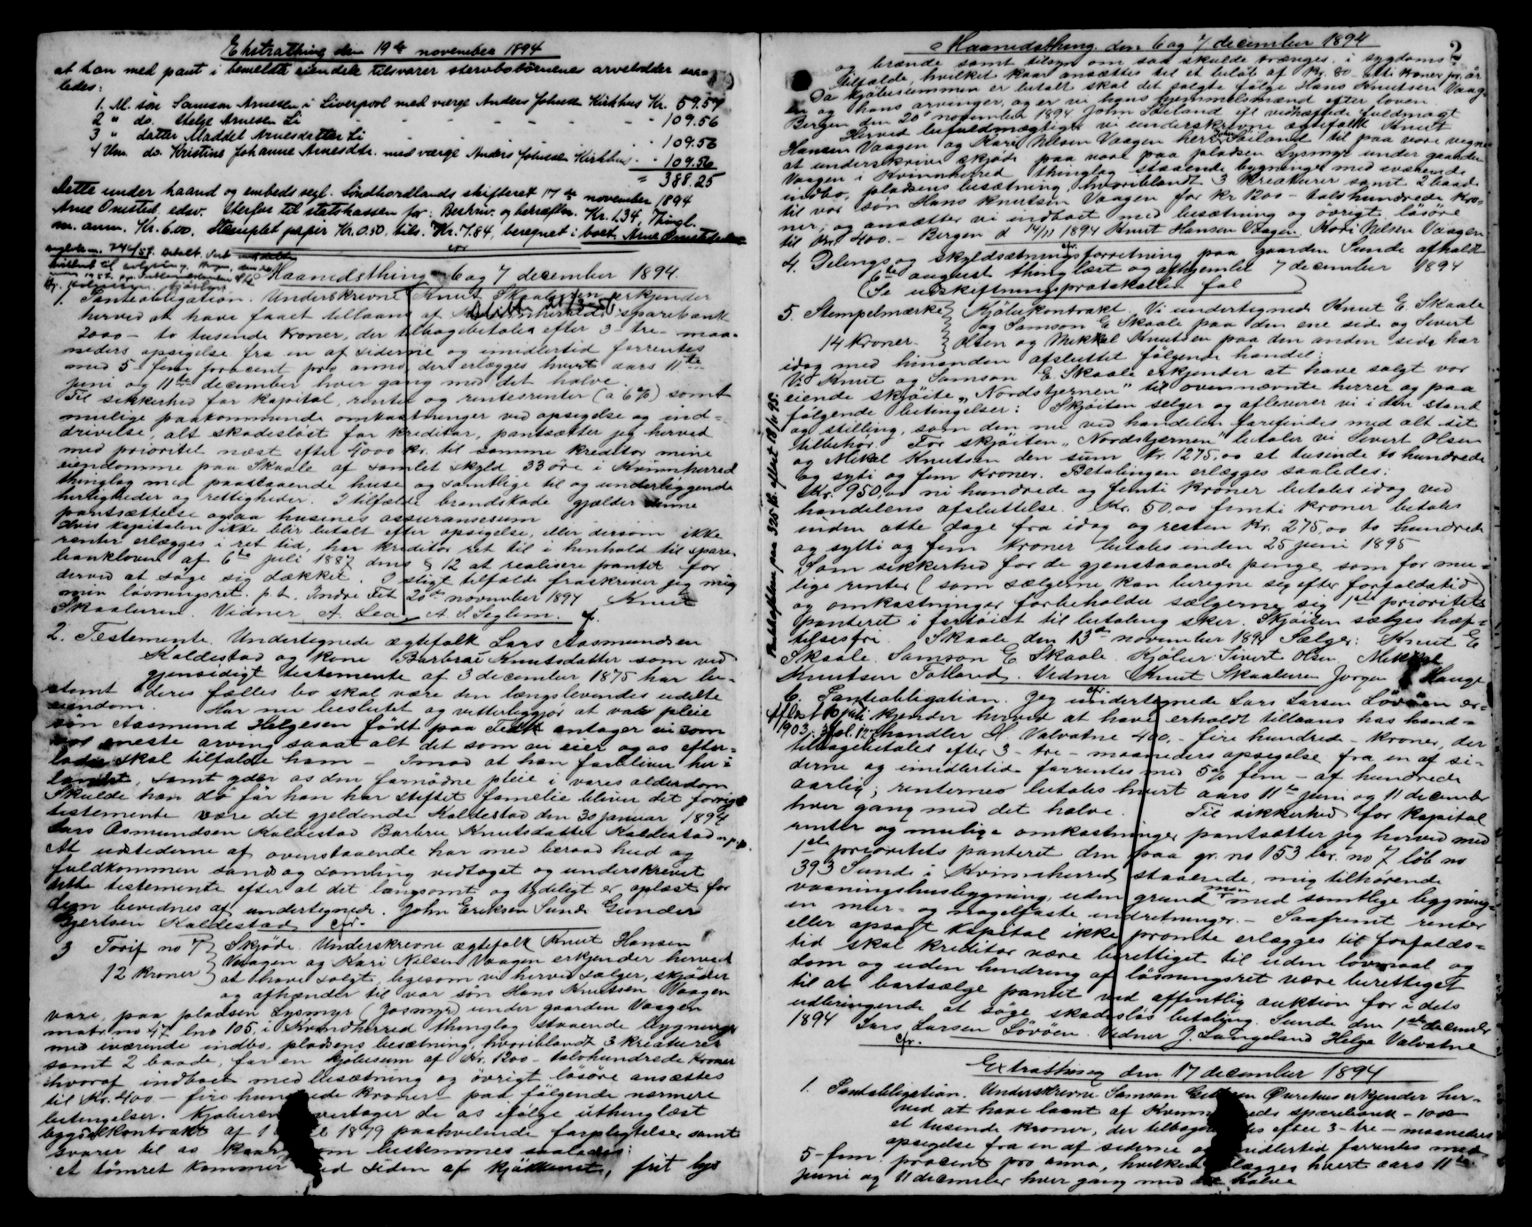 Ekstrathing den 19de november 1894
at han med pant i bemeldte eiendele tilsvarer stervbobörnenes arvelodder saa-
ledes:
1. Ml. sön Samson Arnesen i Liverpool med værge Anders Johnsen Kirkhus Kr. 59.57
2 " do. Helge Arnesen Li - - - - - 109.56
3 " datter Maddel Arnesdatter Li - - - - 109.56
4 Um. do. Kristine Johanne Arnesdtr. med værge Anders Johnsen Kirkhus - 109.56
= 388.25
Dette under haand og embeds segl. Söndhordlands skifteret 17de november 1894
Arne Onsted, edsv. Herfor til statskassen for: Beskriv. og bekræfteln. Kr. 1.34, Thingl.
m. anm. Kr. 6.00. Stemplet papir Kr. 0.50 tils. Kr. 7.84, beregnet i boet. Arne Onsted edsv
Maanedsthing 6 og 7 december 1894.
1. Panteobligation. Underskrevne Knut Skaaluren erkjender
herved at have faaet tillaans af Kvinnherreds sparebank
2000 - to tusende kroner, der tilbagebetales efter 3 - tre - maa-
neders opsigelse fra en af siderne og imidlertid forrentes
med 5 - fem procent pro anno der erlægges hvert aars 11te
juni og 11te december hver gang med det halve.
Til sikkerhed for kapital, renter og rentesrenter (a 6%) samt
mulige paakommende omkostninger ved opsigelse og ind-
drivelse, alt skadeslöst for kreditor, pantsætter jeg herved
med prioritet næst efter 4000 kr. til samme kreditor mine
eiendomme paa Skaale af samlet skyld 33 öre i Kvinnherred
thinglag med paastaaende huse og samtlige til og underliggende
herligheder og rettigheder. I tilfælde brandskade gjælder denne
pantsættelse ogsaa husenes assuransesum
Hvis kapitalen ikke blir betalt efter opsigelse, eller dersom ikke
renter erlægges i ret tid, har kreditor ret til i henhold til spare-
bankloven af 6te juli 1887 dens § 12 at realisere pantet for
derved at söge sig dækket. I sligt tilfælde fraskriver jeg mig
min lösningsret. p.t. Indre Fet 20de november 1894 Knut
Skaaluren. Vidner A. Lea A. S. Seglem. cfr.
2. Testemente. Undertegnede ægtefolk Lars Aasmundsen
Kaldestad og kone Barbra Knutsdatter som ved
gjensidigt testemente af 3 december 1875 har be-
stemt deres fælles bo skal være den længstlevendes udelte
eiendom. Har nu besluttet og vitterliggjör at vor pleie
sön Aasmund Helgesen född paa antager vi som
vor neste arving saaat alt det som vi eier og os efter-
lader skal tilfalde ham - Imod at han forbliver hos
samt yder os den fornödne pleie i vores alderdom
Skulde han dö för han har stiftet familie bliver det forrige
testemente være det gjeldende Kaldestad den 30 januar 1894
Lars Asmundsen Kaldestad Barbru Knutsdatter Kaldestad m.p.p.
At udstederne af ovenstaaende har med beraad hud og
fuldkommen sands og samling vedtaget og underskrevet
dette testemente efter at det langsomt og tydeligt er oplæst for
dem bevidnes af undertegnede. John Eriksen Sunde Gunder
Gjertsen Kaldestad cfr.
3 Tovif no 7 Skjöde. Underskrevne ægtefolk Knut Hansen
12 kroner Vaagen og Kari Nilsen Vaagen erkjender herved
at have solgt, ligesom vi herved sælger, skjöder
og afhænder til vor sön Hans Knutsen Vaagen
vore, paa pladsen Lysmyr (Josmyr) under gaarden Vaagen
matr. no 47 lno 105, i Kvindherred thinglag staaende bygninger
med iværende indbo, pladsens besætning, hvoriblandt 3 kreaturer
samt 2 baade, for en kjöbesum af Kr. 1200 - tolvhundrede kroner
hvoraf indboet med besætning og övrigt lösöre ansættes
til Kr. 400 - fire hundrede kroner - paa fölgende nærmere
betingelser. Kjöberen overtager de os ifölge uthinglæst
bygselkontrakt af 1 1879 paahvilende forpligtelser samt
svarer til os kaar som bestemmes saaledes:
et tömret kammer ved siden af kjökkenet, frit lys

Maanedsthing den 6 og 7 december 1894
2
og brænde samt tilsyn om saa skulde trænges, i sygdoms-
tilfælde, hvilket kaar ansættes til et belöb af Kr. 80 - otti kroner pr. aar
Da kjöbesummen er betalt skal det solgte fölge Hans Knutsen Vaag-
en og hans arvinger, og er vi hans hjemmelsmænd efter loven.
Bergen den 20 november 1894 John Söeland ifl vedhæftede fuldmagt
Herved befuldmægtiges vi underskrevne ægtefolk Knut
Hansen Vaagen og Kari Nilsen Vaagen herr Söeland til paa vore vegne
at underskrive skjöde paa vore paa pladsen Lysmyr under gaarden
Vaagen i Kvinnherred thinglag staaende bygninger med iværende
indbo, pladsens besætning hvoriblandt 3 kreaturer samt 2 baade
til vor sön Hans Knutsen Vaagen for kr 1200 - tolvhundrede kro-
ner, og ansætter vi indboet med besætning og övrigt lösöre
til Kr. 400. - Bergen d 14/11 1894 Knut Hansen Vaagen Kari Nilsen Vaagen
cfr.
4. Delings og skyldsætningsforretning paa gaarden Sunde afholdt
6te august thinglæst og afhjemlet 7 december 1894
(Se udskiftningsprotokollen fol )
5. Stempelmærke Kjöbekontrakt. Vi undertegnede Knut E. Skaale
14 kroner. og Samson E Skaale paa den ene side og Sivert
Olsen og Mikkel Knutsen paa den anden side har
idag med hinanden afsluttet fölgende handel:
Vi Knut og Samson E Skaale erkjender at have solgt vor
eiende skjöite „Nordstjernen" til ovennævnte herrer og paa
fölgende betingelser: Skjöiten sælger og afleverer vi i den stand
og stilling, som den nu ved handelen forefindes med alt sit
tilbehör. For skjöiten „Nordstjernen" betaler vi Sivert Olsen
og Mikal Knutsen den sum Kr. 1275,00 et tusende to hundrede
og sytti og fem kroner. Betalingen erlægges saaledes:
Kr. 950,00 ni hundrede og femti kroner betales idag ved
handelens afsluttelse. Kr. 50,00 femti kroner betales
inden otte dage fra idag og resten Kr. 275,00 to hundrede
og sytti og fem kroner betales inden 25 juni 1895
Som sikkerhed for de gjenstaaende penge som for mu-
lige renter (som sælgerne kan beregne sig efter forfaldstid)
og omkostninger forbeholder sælgerne sig 1ste prioritets
panteret i fartöiet til betaling sker. Skjöiten sælges hæf-
telsesfri. Skaale den 13de november 1894 Sælger: Knut E
Skaale. Samson E Skaale. Kjöber: Sivert Olsen Mikkel
Knutsen Tofland. Vidner Knut Skaaluren Jörgen Hauge
Panthæftelsen paa 325 kr. aflæst 18/6 95.
cfr.
6. Panteobligation. Jeg undertegnede Lars Larsen Lövöen er-
kjender herved at have erholdt tillaans hos hand-
Aflæst 10 juli
1903 fol. 125
handler H. Valvatne 400,- fire hundrede - kroner, der
tilbagebetales efter 3 - tre - maaneders opsigelse fra en af si-
derne og imidlertid forrentes med 5% fem - af hundrede
aarlig; renterne betales hvert aars 11te juni og 11 december
hver gang med det halve. Til sikkerhed for kapital
renter og mulige omkostninger pantsætter jeg herved med
1ste prioritets panteret den paa gr. no 153 br. no 7 löb no
393 Sunde i Kvinnherred staaende, mig tilhörende
vaaningshusbygning, uden grund men med samtlige bygning-
en mur- og nagelfaste indretninger. - Saafremt renter
eller opsagt kapital ikke promte erlægges til forfalds-
tid skal kreditor være berettiget til uden lovmaal og
dom og uden hindring af lösningsret være berettiget
til at bortsælge pantet ved offentlig auktion for i dets
udbringende at söge skadeslös betaling. Sunde den 1ste december
1894 Lars Larsen Lövöen. Vidner J. Langeland Helge Valvatne
cfr.
Extrathing den 17 december 1894
1. Panteobligation. Underskrevne Samson erkjender her-
ved at have laant af Kvinnherreds sparebank - 1000
et tusende kroner, der tilbagebetales efter 3 - tre - maaneders
opsigelse fra en af siderne og imidlertid forrentes med
5 - fem procent pro anno, hvilken erlægges hvert aars 11te
juni og 11 december hver gang med det halve